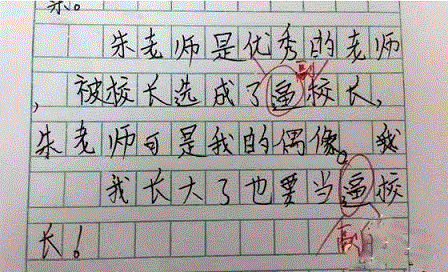 朱老师是优秀的老师
副
，被校长选成了逼校长，
朱老师可是我的偶像。我
我长大了也要当逼校
长！
副